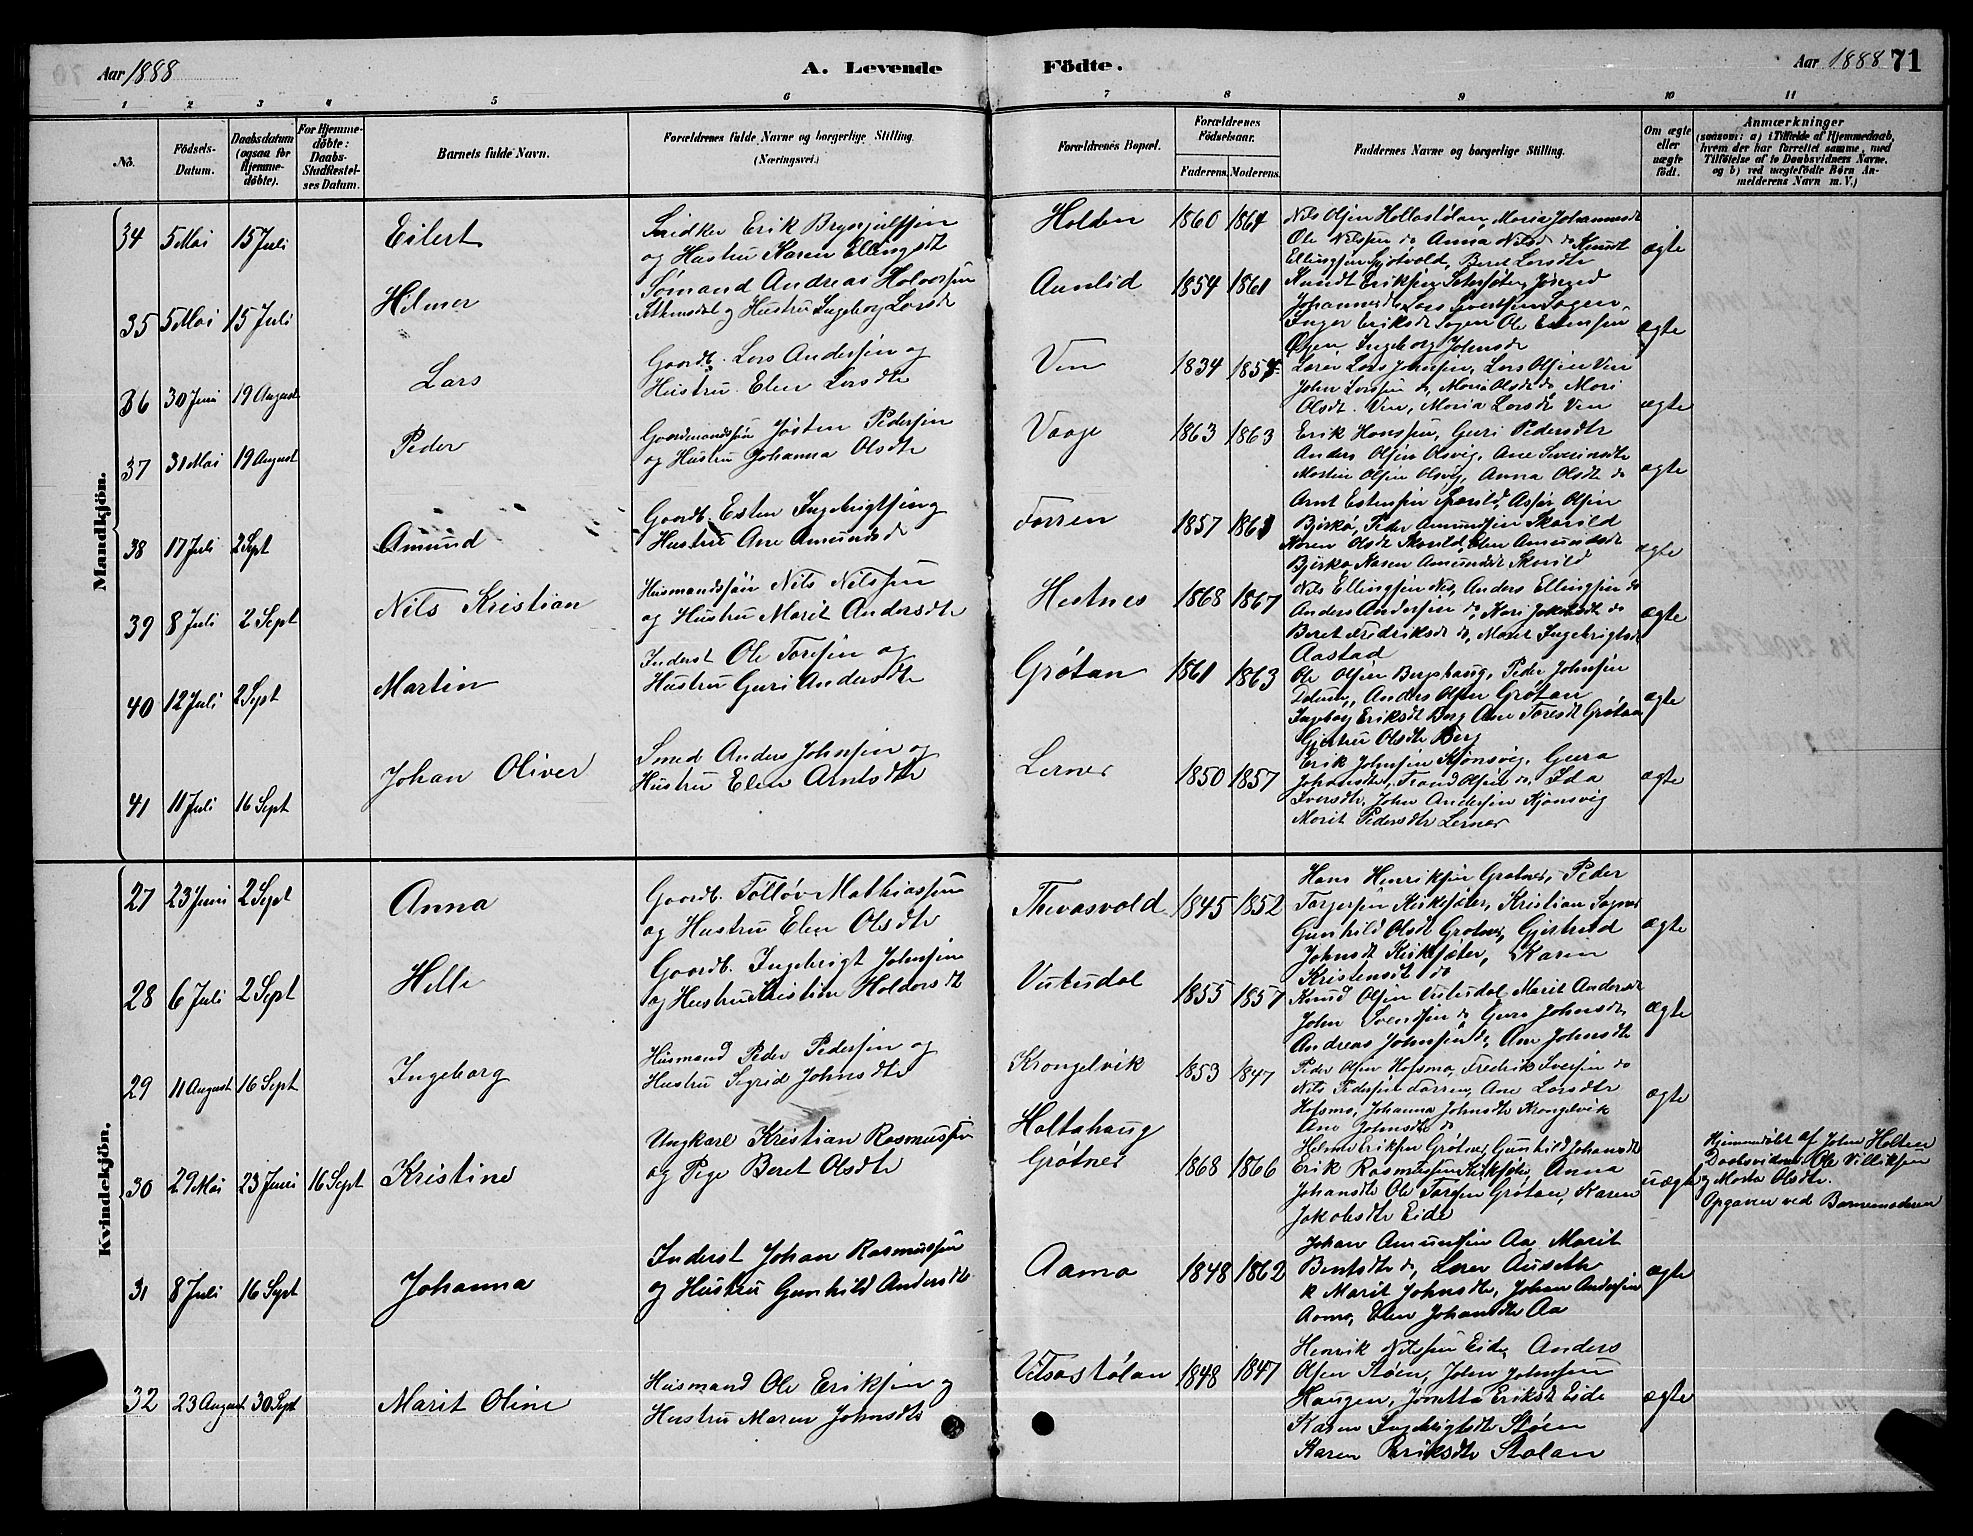 Aar 1888
A. Levende
Födte.
Aar 1888 71
1 2 3 4 5 6 7 8 9 10 11
No.
Födsels-
Datum.
Daabsdatum
(ogsaa for
Hjemme-
döbte).
For Hjemme-
döbte:
Daabs-
Stadfæstel-
ses Datum.
Barnets fulde Navn.
Forældrenes fulde Navne og borgerlige Stilling.
(Næringsvei.)
Forældrenes Bopæl.
Forældrenes
Födselsaar.
Faderens. Moderens.
Faddernes Navne og borgerlige Stilling.
Om ægte
eller
uægte
födt.
Anmærkninger
(saasom: a) i Tilfælde af Hjemmedaab,
hvem der har forrettet samme, med
Tilföielse af to Daabsvidners Navne,
og b) ved uægtefödte Börn An-
melderens Navn m. V.)
Mandkjön.
34 5 Mai 15 Juli
Eilert
Snidker Erik
og Hustru Karen Ellingsdt
Holden
1860 1864
Nils Olsen Hollastølan, Maria Johannesdt
Ole Nilssen do Anna Nilsd do Knudt
Ellingsen Sjøtvold, Beret Larsdtr
ægte
35 5 Mai 15 Juli
Helmer
Sømand Andreas Halvorsen
og Hustru Ingeborg Larsdt
Aunlid
1854 1861
Knudt Eriksen
Johannesdt Lars Sivertsen Sagen,
Inger Eriksdt Sagen Ole Estensen
Ingeborg Johnsdt
ægte
36 30 Juni 19 August
Lars
Gaardb. Lars Andersen og
Hustru Elen Larsdtr
Ven
1834
Lærer Lars Johnsen, Lars Olsen Ven
John Larssen do, Maria Olsdt do, Mari
Olsdt. Ven, Maria Larsdt Ven
ægte
37 31 Mai 19 August
Peder
Gaardmandssøn Jøsten Pedersen
og Hustru Johanna Olsdt
Vaage
1863 1863
Erik Hanssen, Guri Pedersdtr
Anders Olsen Olsvig, Ane Iverinsdtr
Martin Olsen Olsvig, Anna Olsdt do
ægte
38 17 Juli 2 Sept
Amund
Gaardb. Esten Ingebrigtsen og
Hustru Ane Amundsd
Forren
1857 1861
Arnt Estensen Asfør Olsen
Bjørkø, Peder Amundsen Skarild
Karen Olsdt Skarild, Elen Amundsdt
Bjørkø, Karen Amundsdt Skarild
ægte
39 8 Juli 2 Sept
Nils Kristian
Husmandssøn Nils Nilssen
og Hustru Marit Andersdtr
Hestnes
1868 1867
Nils Ellingsen Nes, Anders Ellingsen do
Anders Andersen do, Kari Jakobsdt do
Beret Fredriksdt do, Marit Ingebrigtsdt
Aastad
ægte
40 12 Juli 2 Sept
Martin
Inderst Ole Toresen og
Hustru Guri Andersdtr
Grøtan
1861 1863
Ole Olsen Berghaug, Peder Johnsen
Anders Olsen Grøtan
Ingeborg Eriksdt Berg Ane Toresdt Grøtan
Gjertru Olsdtr Berg
ægte
41 11 Juli 16 Sept
Johan Oliver
Smed Anders Johnsen og
Hustru Elen Arntsdtr
Lernes
1850 1857
Erik Johnsen Kjønsvig, Gura
Johansdtr, Trond Olsen do, Ida
Iversdtr, John Andersen Kjønsvig
Marit Pedersdtr Lernes
ægte
Kvindekjön.
27 23 Juni 2 Sept
Anna
Gaardb. Tolløv Mathiassen
og Hustru Elen Olsdtr
Thevasvold
1845 1852
Hans Henriksen Grøtnes, Peder
Torgersen Kirksæter, Kristian Sognes
Gunhild Olsdt Grøtnes, Gjertrud
Johnsdt Kirksæter, Karin
Kristensdt do
ægte
28 6 Juli 2 Sept
Helle
Gaardb. Ingebrigt Johnsen
og Hustru Kristine Haldorsdt
Vutudal
1855 1857
Knud Olsen Vutudal Marit Andersdt
John Svendsen do Guru Johnsdt
Andreas Johnsen do, Ane Johnsdtr
ægte
29 11 August 16 Sept
Ingeborg
Husmand Peder Pedersen og
Hustru Segrid Johnsdtr
Krongelvik
1853 1847
Peder Olsen Hofsmo, Fredrik Iversen do
Nils Pedersen Forren, Ane Larsdtr
Hofsmo, Johanna Johnsdtr Krongelvik
Ane Johnsdtr do
ægte
30 29 Mai 23 Juni 16 Sept
Kristine
Ungkarl Kristian Rasmussen
og Pige Beret Olsdtr
Holtahaug
Grøtnes
1868 1866
Helmer Eriksen Grøtnes, Gunhild Johansdt
Erik Rasmussen Kirksæter, Anna
Johansdt Ole Toresen Grøtan, Karen
Jakobsdtr Eide
uægte
Hjemmedøbt af John Holten
Daabsvidner Ole Villiksen
og Marta Olsdtr.
Opgaven ved Barnemoderen
31 8 Juli 16 Sept
Johanna
Inderst Johan Rasmussen
og Hustru Gunhild Andersdt
Aamo
1848 1862
Johan Amundsen Aa, Marit
Berntsdt do, Lærer Auseth
k Marit Johnsdt, Johan Andersen
Aamo, Elen Johansdtr Aa
ægte
32 23 August 30 Sept
Marit Oline
Husmand Ole Eriksen og
Hustru Maren Johnsdtr
Vitsøstølan
1848 1847
Henrik Nilssen Eide, Anders
Olsen Støen, John Johnsen
Haugen, Jonetta Eriksdt Eide
Karen Ingebrigtsdtr Støen
Karen Eriksdtr Stølan
ægte